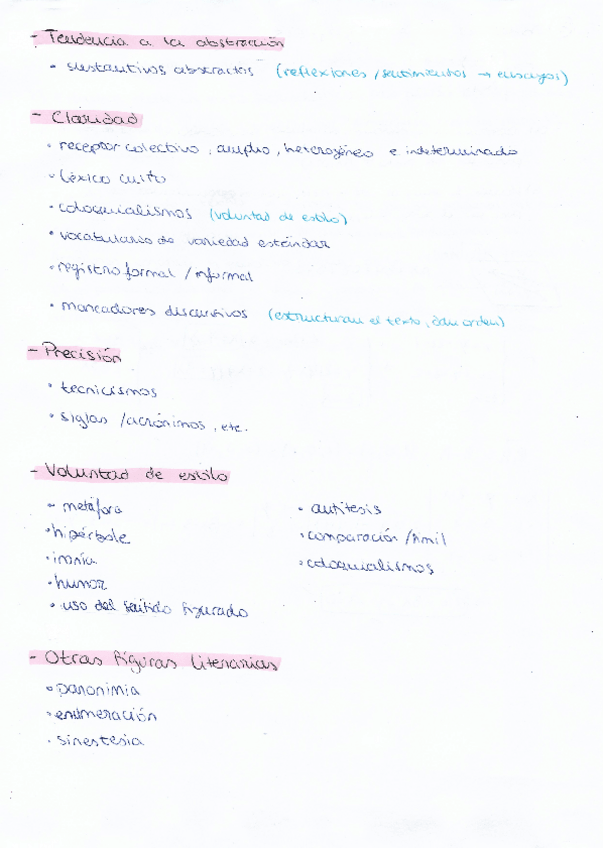 - Tendencia a la abstracción
• sustantivos abstractos (reflexiones / sentimientos → ensayos)
- Claridad
• receptor colectivo, amplio, heterogéneo e indeterminado
• léxico culto
• coloquialismos (voluntad de estilo)
• vocabulario de variedad estándar
• registro formal / informal
• marcadores discursivos (estructuran el texto, dan orden)
- Precisión
• tecnicismos
• siglas / acrónimos, etc.
- Voluntad de estilo
• metáfora
• hipérbole
• ironía
• humor
• uso del sentido figurado
• antítesis
• comparación / símil
• coloquialismos
- Otras figuras literarias
• paronimia
• enumeración
• sinestesia